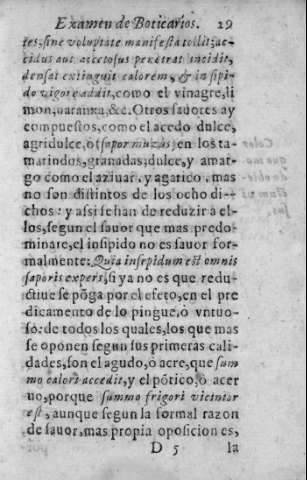 Examen de Boticarios. 29
tes, sine voluptate manifesta tollit; ac-
cidus aut acetosus penetrat incidit,
densat extinguit calorem, & insipi-
do vigorẽ addit, como el vinagre, li
mon, naranxa, &c. Otros sauores ay
compuestos, como el acedo dulce,
agridulce, ò sapor muzas; en los ta-
marindos, granadas; dulce, y amar-
go como el aziuar, y agarico, mas
no son distintos de los ocho di-
chos: y assi se han de reduzir à el-
los, segun el sauor que mas predo-
minare, el insipido no es sauor for-
malmente: Quia insipidum est omnis
saporis expers, si ya no es que redu-
ctiue se põga por el efeto, en el pre
dicamento de lo pingue, ò vntuo-
so: de todos los quales, los que mas
se oponen segun sus primeras cali-
dades, son el agudo, ò acre, que sum
mo calori accedit, y el põtico, ò acer
uo, porque summo frigori vicinior
est, aunque segun la formal razon
de sauor, mas propia oposicion es,
D 5 la